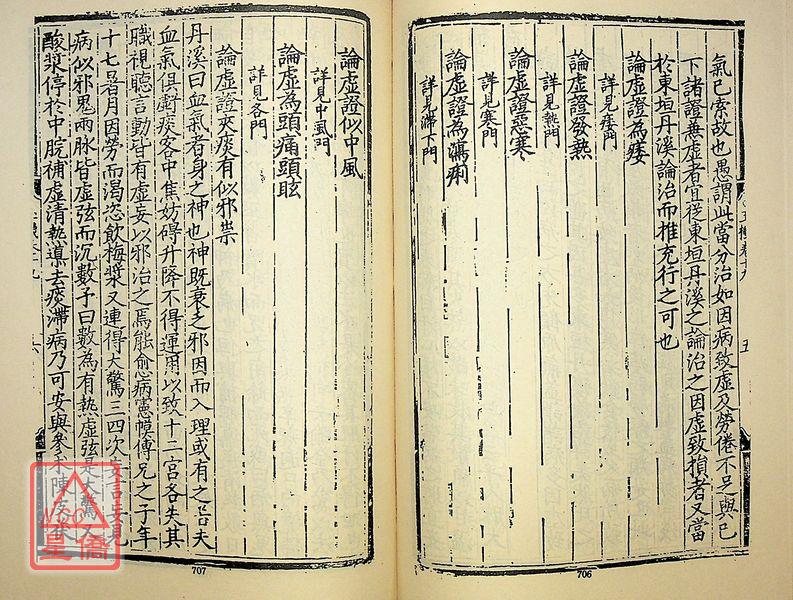 氣已索故也愚謂此當分治如因病致虛及勞倦不足與已
下諸證無虛者宜從東垣丹溪之論治之因虛致損者又當
於東垣丹溪論治而推充行之可也
論虛證為痿
詳見痿門
論虛證發熱
詳見熱門
論虛證惡寒
詳見寒門
論虛證為瀉痢
詳見滯下門
五
706
論虛證似中風
詳見中風門
論虛為頭痛頭眩
詳見各門
論虛證夾痰有似邪祟
丹溪曰血氣者身之神也神既衰乏邪因而入理或有之若夫
血氣俱虧痰客中焦妨碍升降不得運用以致十二官各失其
職視聽言動皆有虛妄以邪治之焉能愈病憲幙傅兄之子年
十七暑月因勞而渴恣飲梅漿又連得大驚三四次妄言妄見
病似邪鬼兩脉皆虛弦而沉數予曰數為有熱虛弦是大驚又
酸漿停於中脘補虛清熱導去痰滯病乃可安與參术陳皮茯
707
星僑